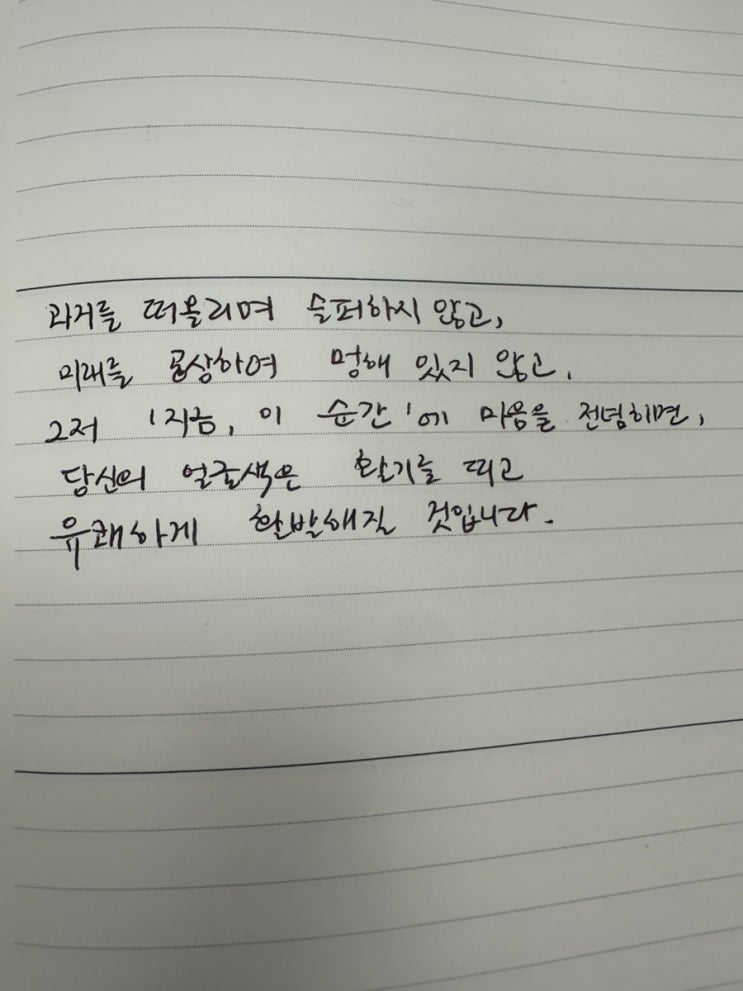 과거를 떠올리며 슬퍼하지 않고,
미래를 공상하여 멍해 있지 않고,
그저 '지금, 이 순간'에 마음을 전념하면,
당신의 얼굴색은 활기를 띠고
유쾌하게 활발해질 것입니다.